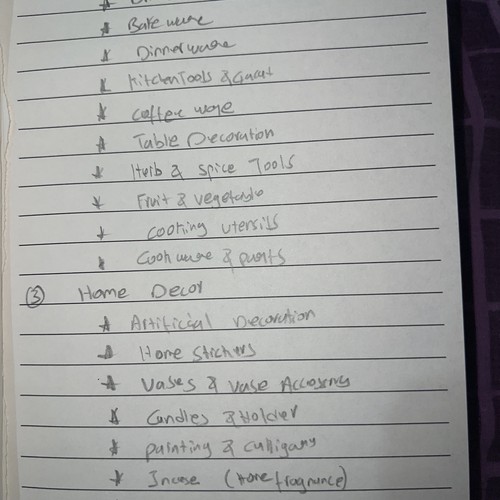 * Bakeware
* Dinnerware
* Kitchen Tools &
* Coffee ware
* Table Decoration
* Herb & spice Tools
* Fruit & vegetable
* Cooking utensils
* Cookware &
③ Home Decor
* Artificial Decoration
* Home stickers
* Vases & Vase
* Candles & Holder
* painting &
* (Home fragnance)